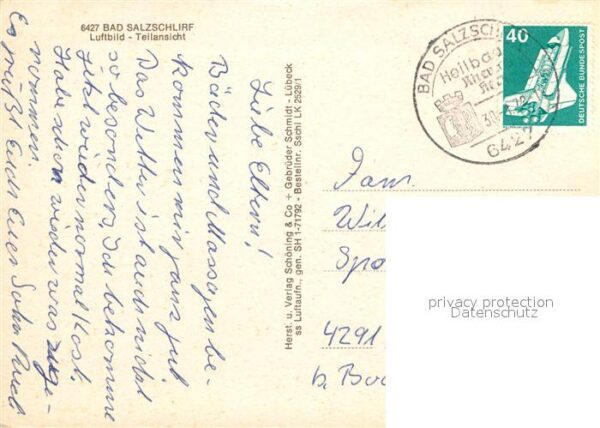 6427 BAD SALZSCHLIRF
Luftbild - Teilansicht
Liebe Eltern!
Bäder und Massagen be-
kommen mir ganz gut
Das Wetter ist auch nicht
so besonders. Ich bekomme
jetzt wieder normal Kost.
Habe schon wieder was zuge-
nommen.
Es grüßt Euch Euer Sohn
Herst. u. Verlag Schöning & Co + Gebrüder Schmidt - Lübeck
ss Luftaufn., gen. SH 1-71792 - Bestellnr. Sschl LK 2529/1
BAD SALZSCH
Heilbad
6427
40
DEUTSCHE BUNDESPOST
Fam.
Wil
Spo
4291
b. Boc
privacy protection
Datenschutz